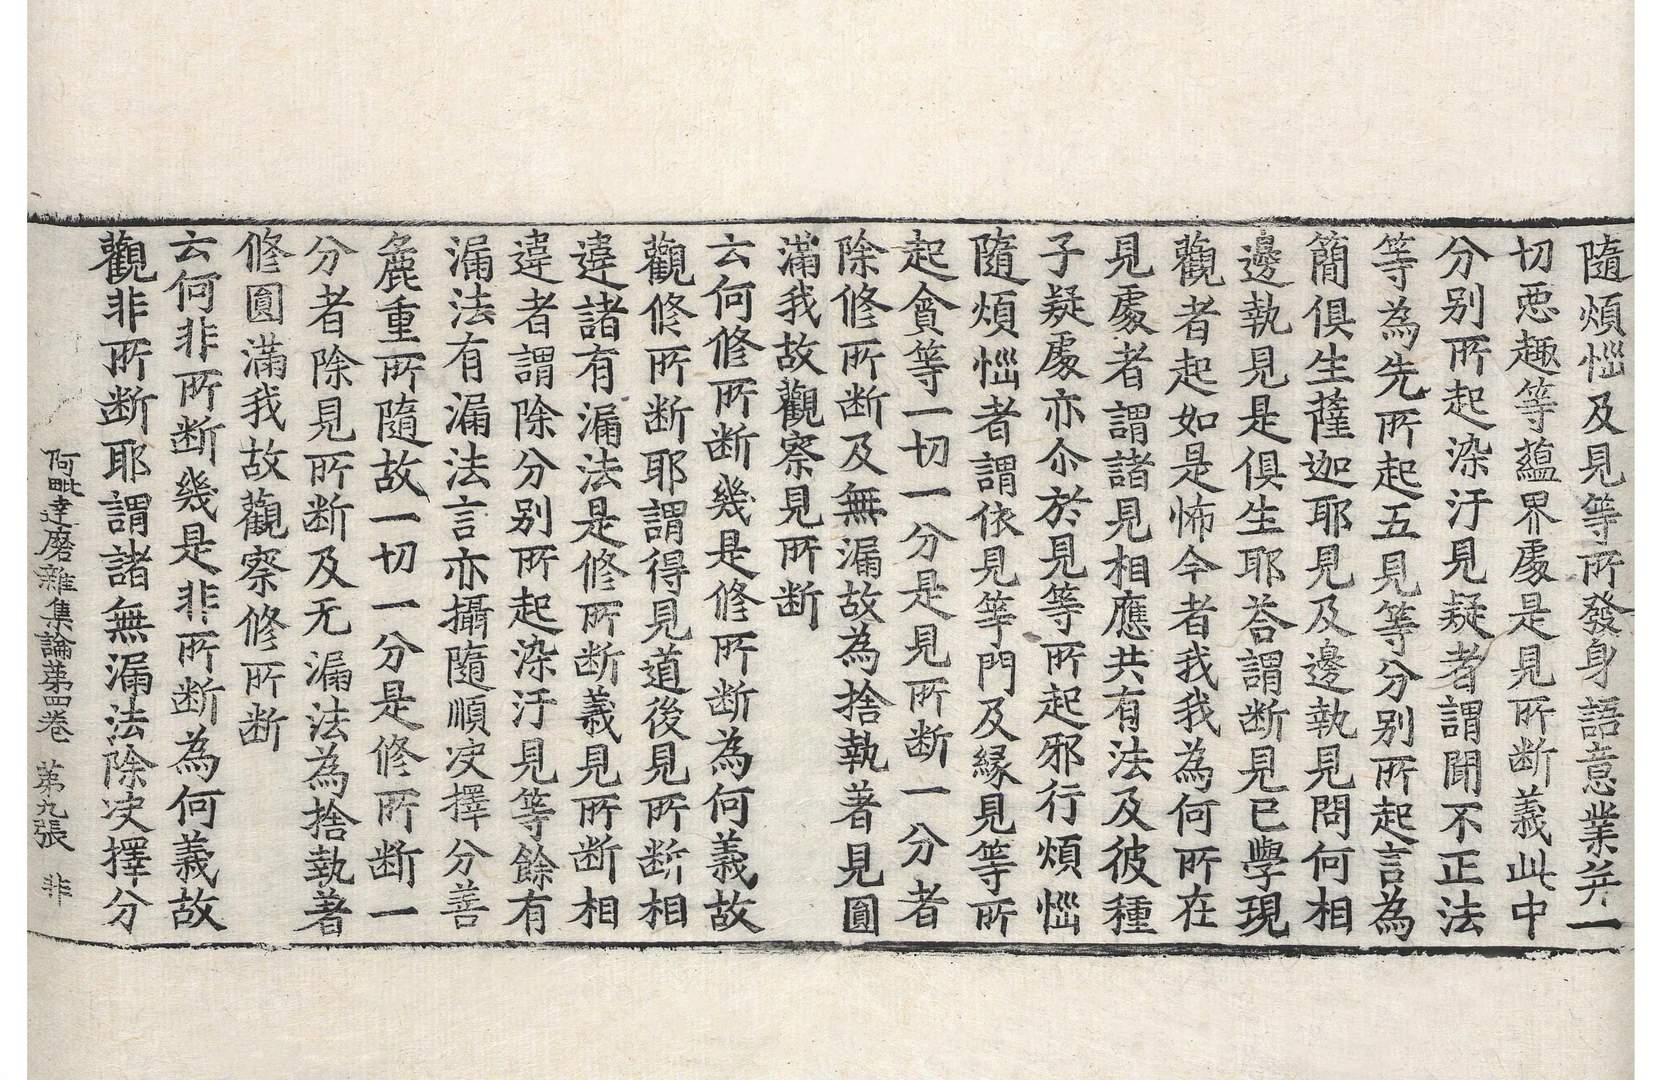 隨煩惱及見等所發身語意業并一
切惡趣等蘊界處是見所断義此中
分別所起染汙見疑者謂聞不正法
等為先所起五見等分别所起言為
簡俱生薩迦耶見及邊執見問何相
邊執見是俱生耶荅謂断見已學現
觀者起如是怖今者我我為何所在
見處者謂諸見相應共有法及彼種
子疑處亦尒於見等所起邪行煩惱
隨煩惱者謂依見等門及縁見等所
起貪等一切一分是見所断一分者
除修所断及無漏故為捨執著見圓
滿我故觀察見所断
云何修所断幾是修所断為何義故
觀修所断耶謂得見道後見所断相
違諸有漏法是修所断義見所断相
違者謂除分別所起染汙見等餘有
漏法有漏法言亦攝隨順决擇分善
麁重所隨故一切一分是修所断一
分者除見所断及无漏法為捨執著
修圓滿我故觀察修所断
云何非所断幾是非所断為何義故
觀非所断耶謂諸無漏法除决擇分
阿毗達磨雜集論苐四卷 苐九張 非